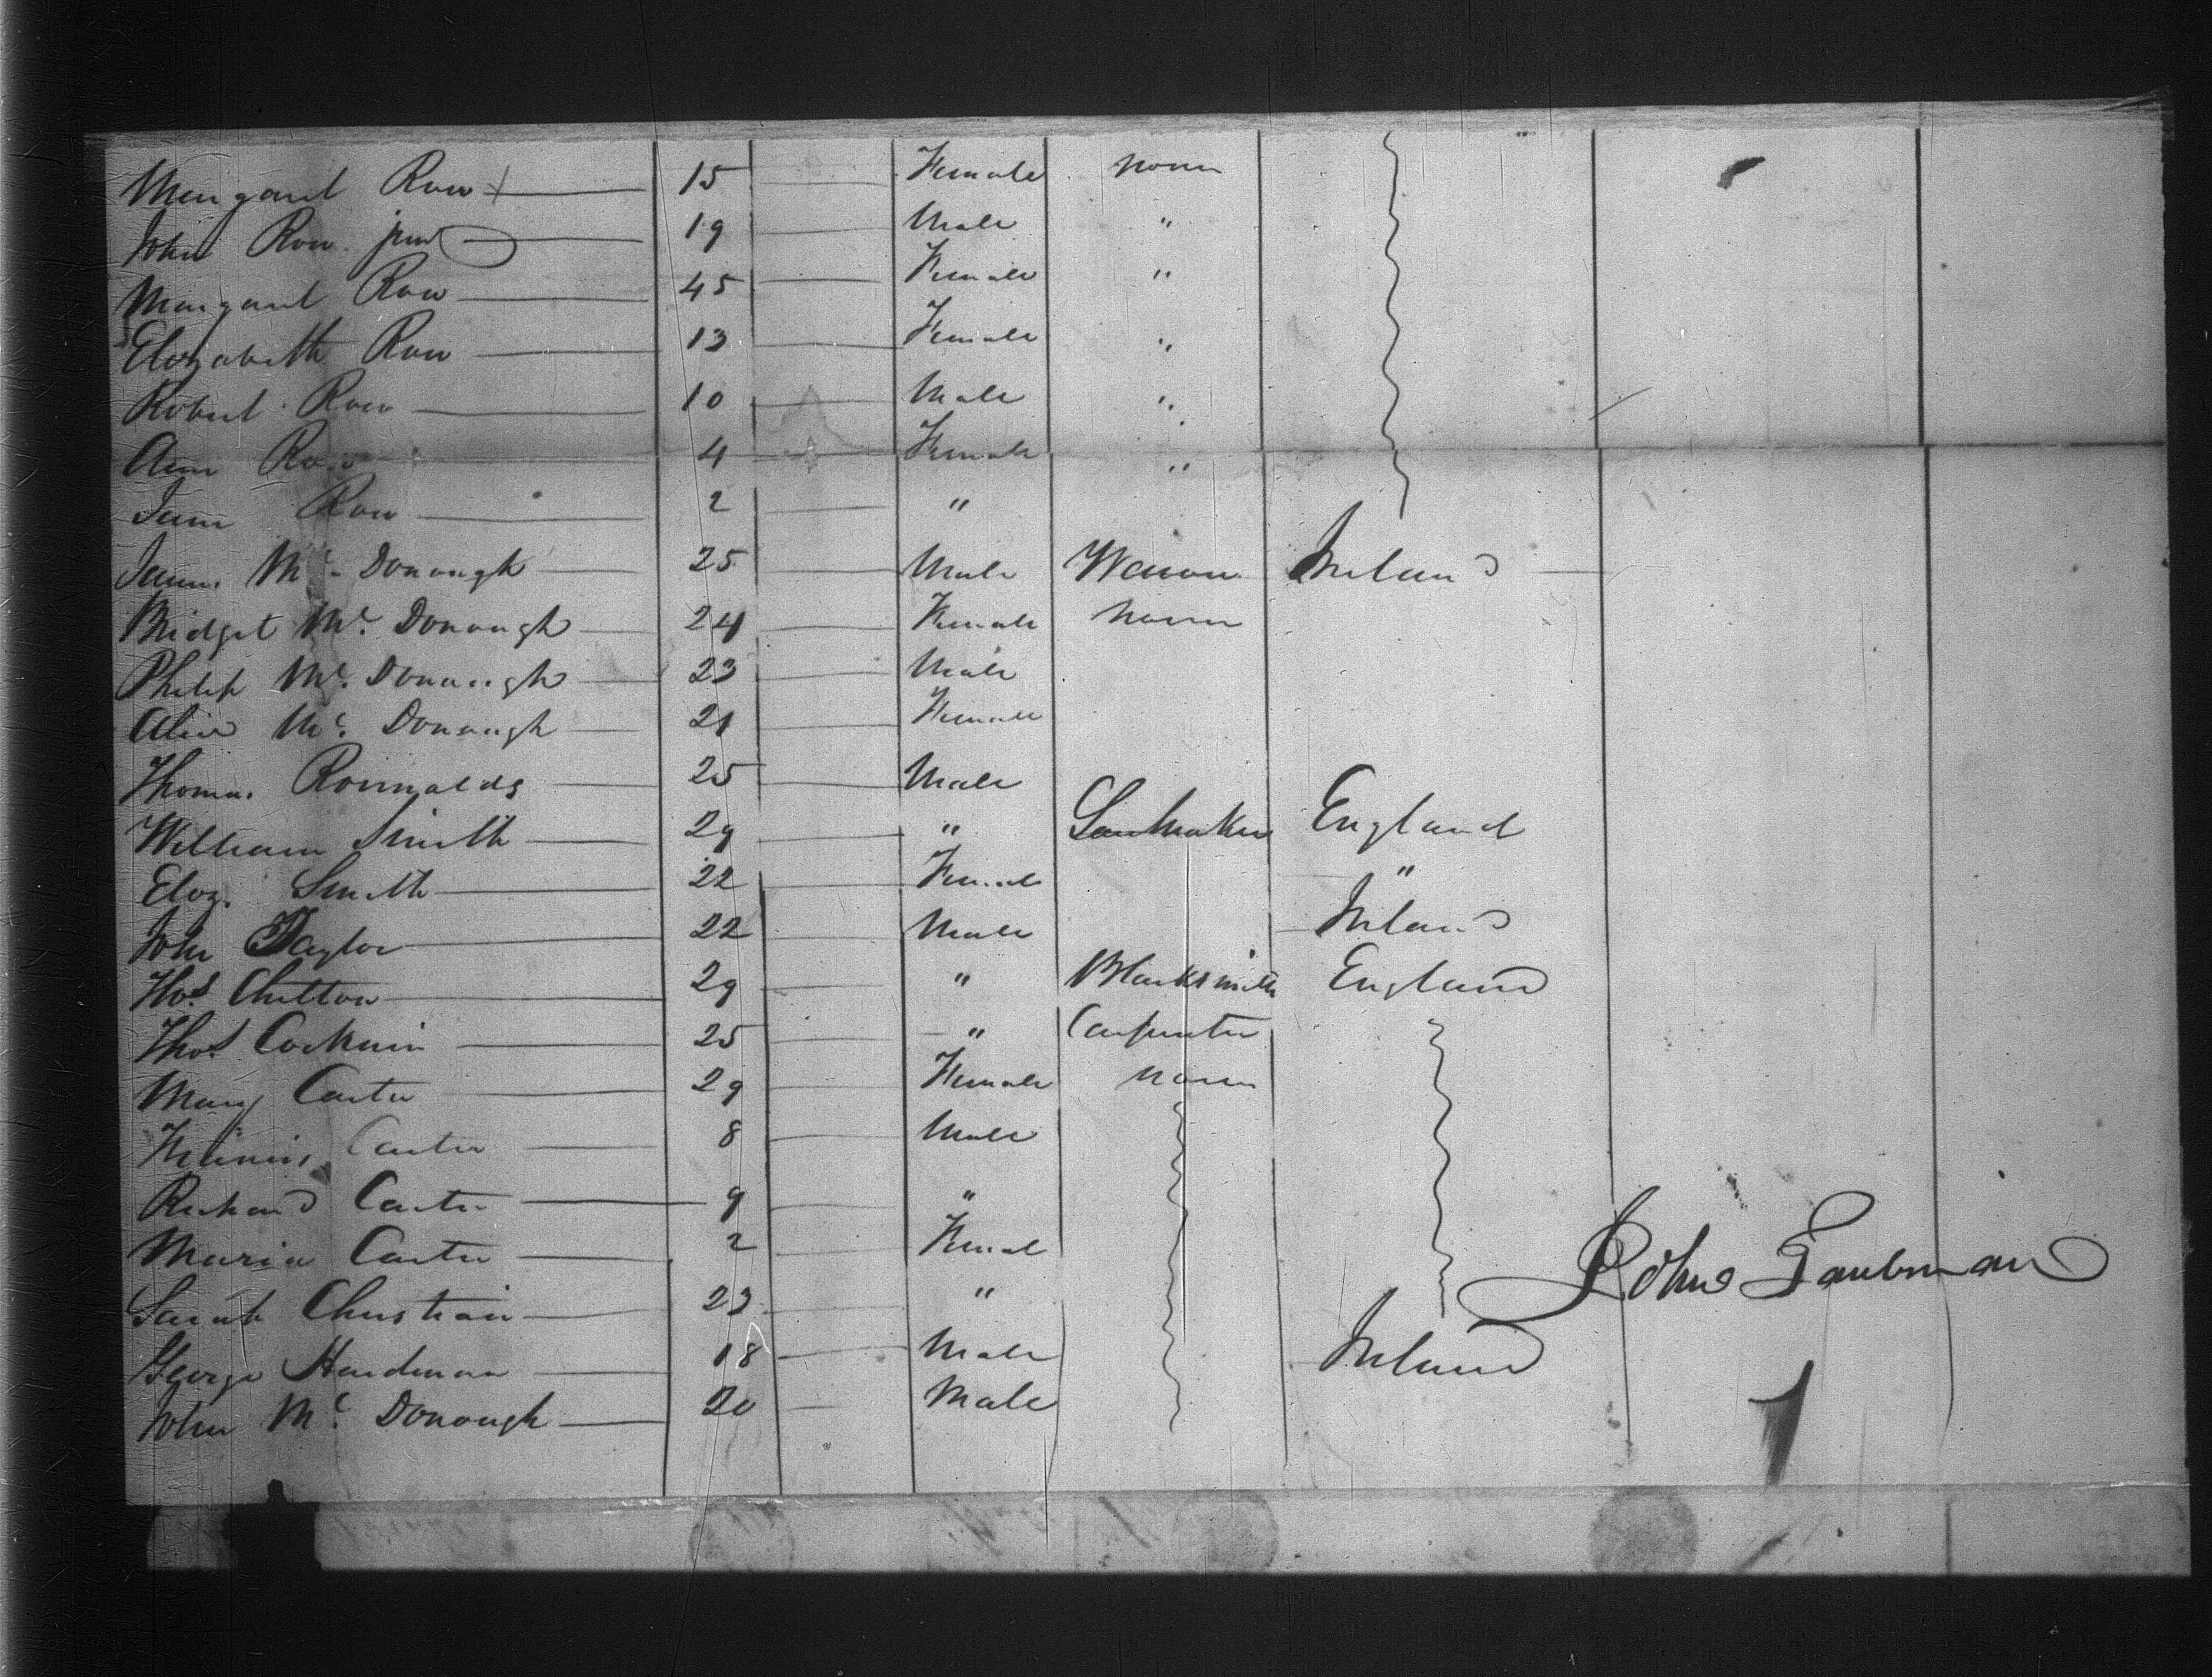 Margaret Row 15 Female none
John Row junr 19 Male "
Margaret Row 45 Female "
Elizabeth Row 13 Female "
Robert Row 10 Male "
Ann Row 4 Female "
Jane Row 2 "
James Mc Donough 25 Male Ireland
Bridget Mc Donough 24 Female none
Philip Mc Donough 23 Male
Alice Mc Donough 21 Female
Thomas 25 Male
William Smith 29 " England
Eliz. Smith 22 Female "
John Taylor 22 Male Ireland
Thos Chilton 29 " Blacksmith England
Thos 25 " Carpenter
Mary Carter 29 Female none
Francis Carter 8 Male
Richard Carter 9 "
Maria Carter 2 Femal
Sarah Christian 23 "
John
George Hardman 18 Male Ireland
John Mc Donough 20 Male
1